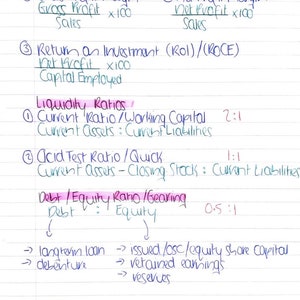 Gross Profit x100 Net Profit x100
Sales Sales
③ Return on Investment (ROI)/(ROCE)
Net Profit x100
Capital Employed
Liquidity Ratios
① Current Ratio/Working Capital 2:1
Current Assets : Current Liabilities
② Acid Test Ratio/Quick 1:1
Current Assets - Closing Stock : Current Liabilities
Debt/Equity Ratio/Gearing
Debt : Equity 0.5:1
→ longterm loan → issued/OSC/equity share Capital
→ debenture → retained earnings
→ reserves